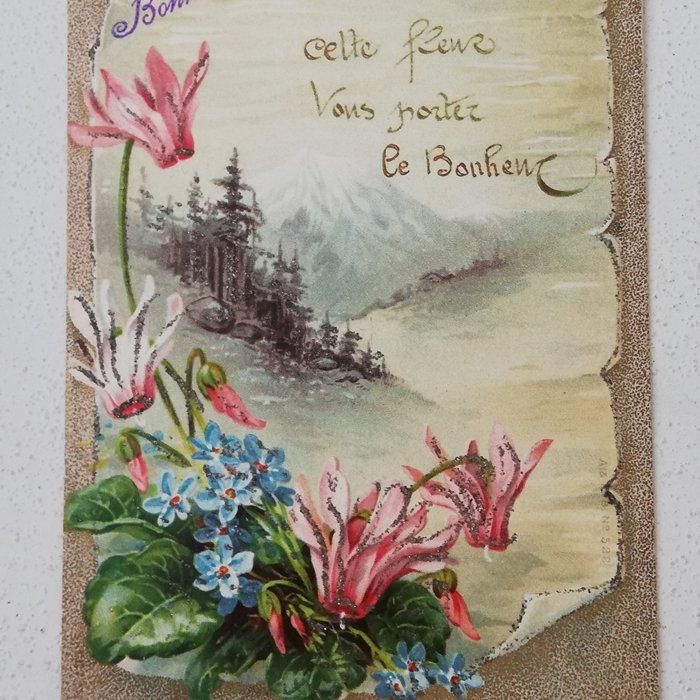 cette fleur
Vous porter
le Bonheur